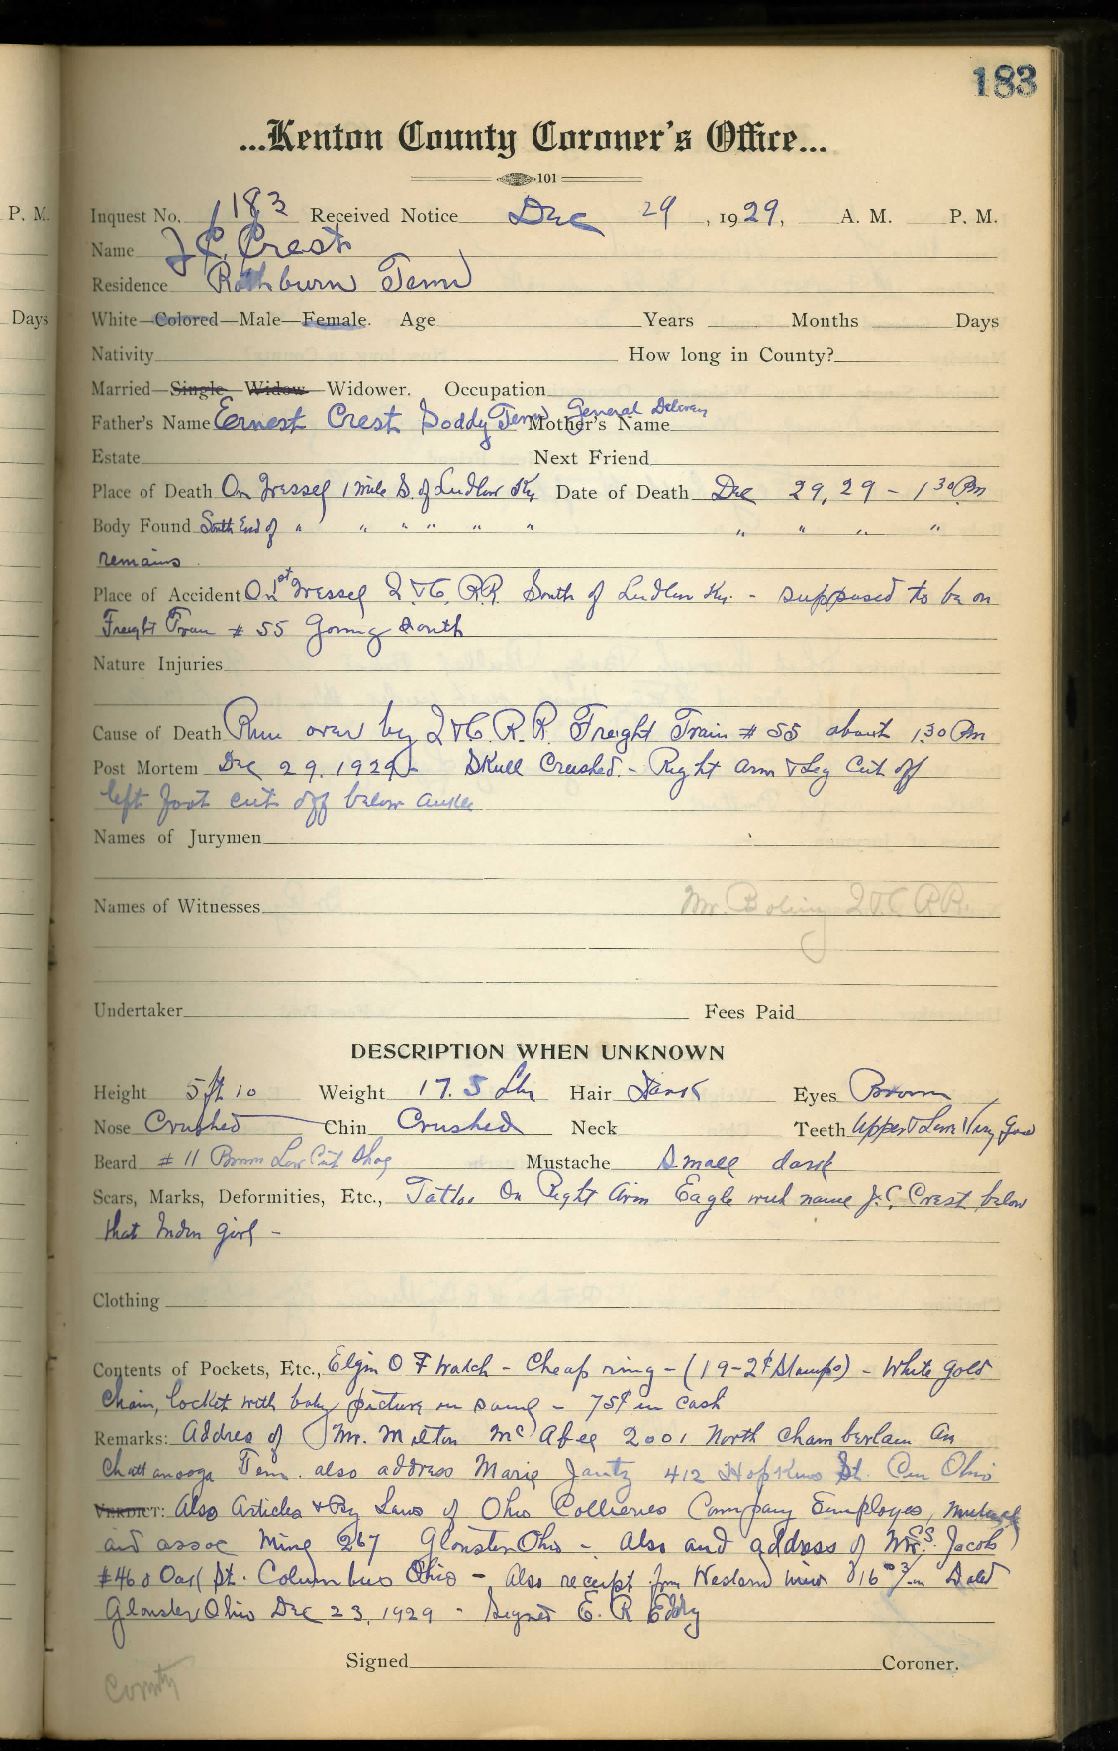 183
...Kenton County Coroner's Office...
101
P. M.
Inquest No. 183 Received Notice Dec 29, 1929, A. M. P. M.
Name J. C. Crest
Residence Rathburn Tenn
Days
White—Colored—Male—Female. Age Years Months Days
Nativity How long in County?
Married—Single—Widow—Widower. Occupation
Father's Name Ernest Crest Soddy Tenn General Delivery Mother's Name
Estate Next Friend
Place of Death On Tressel 1 mile S. of Ludlow Ky Date of Death Dec 29, 29 - 1 30 Pm
Body Found South End of " " " " " " " " " "
remains
Place of Accident On 1st Tressel Q & C, RR. South of Ludlow Ky. - supposed to be on
Freight Train # 55 Going South
Nature Injuries
Cause of Death Run over by Q & C. R. R. Freight Train # 55 about 1.30 Pm
Post Mortem Dec 29. 1929 - Skull Crushed. - Right arm & Leg Cut off
left foot cut off below ankle
Names of Jurymen
Names of Witnesses Mr. Boling Q & C RR.
Undertaker Fees Paid
DESCRIPTION WHEN UNKNOWN
Height 5 ft 10 Weight 17.5 Lbs Hair Dark Eyes Brown
Nose Crushed Chin Crushed Neck Teeth Upper & Lower Very Good
Beard # 11 Brown Low Cut Shoe Mustache Small dark
Scars, Marks, Deformities, Etc., Tattoo On Right Arm Eagle with name J. C. Crest below
that Indn girl -
Clothing
Contents of Pockets, Etc., Elgin O F Watch - Cheap ring - (19-2¢ Stamps) - White gold
Chain, locket with baby picture in same - 75¢ in cash
Remarks: Addres of Mr. Milton McAfee 2001 North Chamberlain Av
Chattanooga Tenn. also address Marie Jantz 412 Hopkins St. Cin Ohio
VERDICT: Also Articles & By Laws of Ohio Collieries Company Employes, mutual
aid assoc Mine 267 Glouster Ohio - Also and address of Mrs. Jacob
#460 Oak St. Columbus Ohio - Also receipt from Dated
Glouster Ohio Dec 23, 1929 - Signed E. R Eddy
Signed Coroner.
County